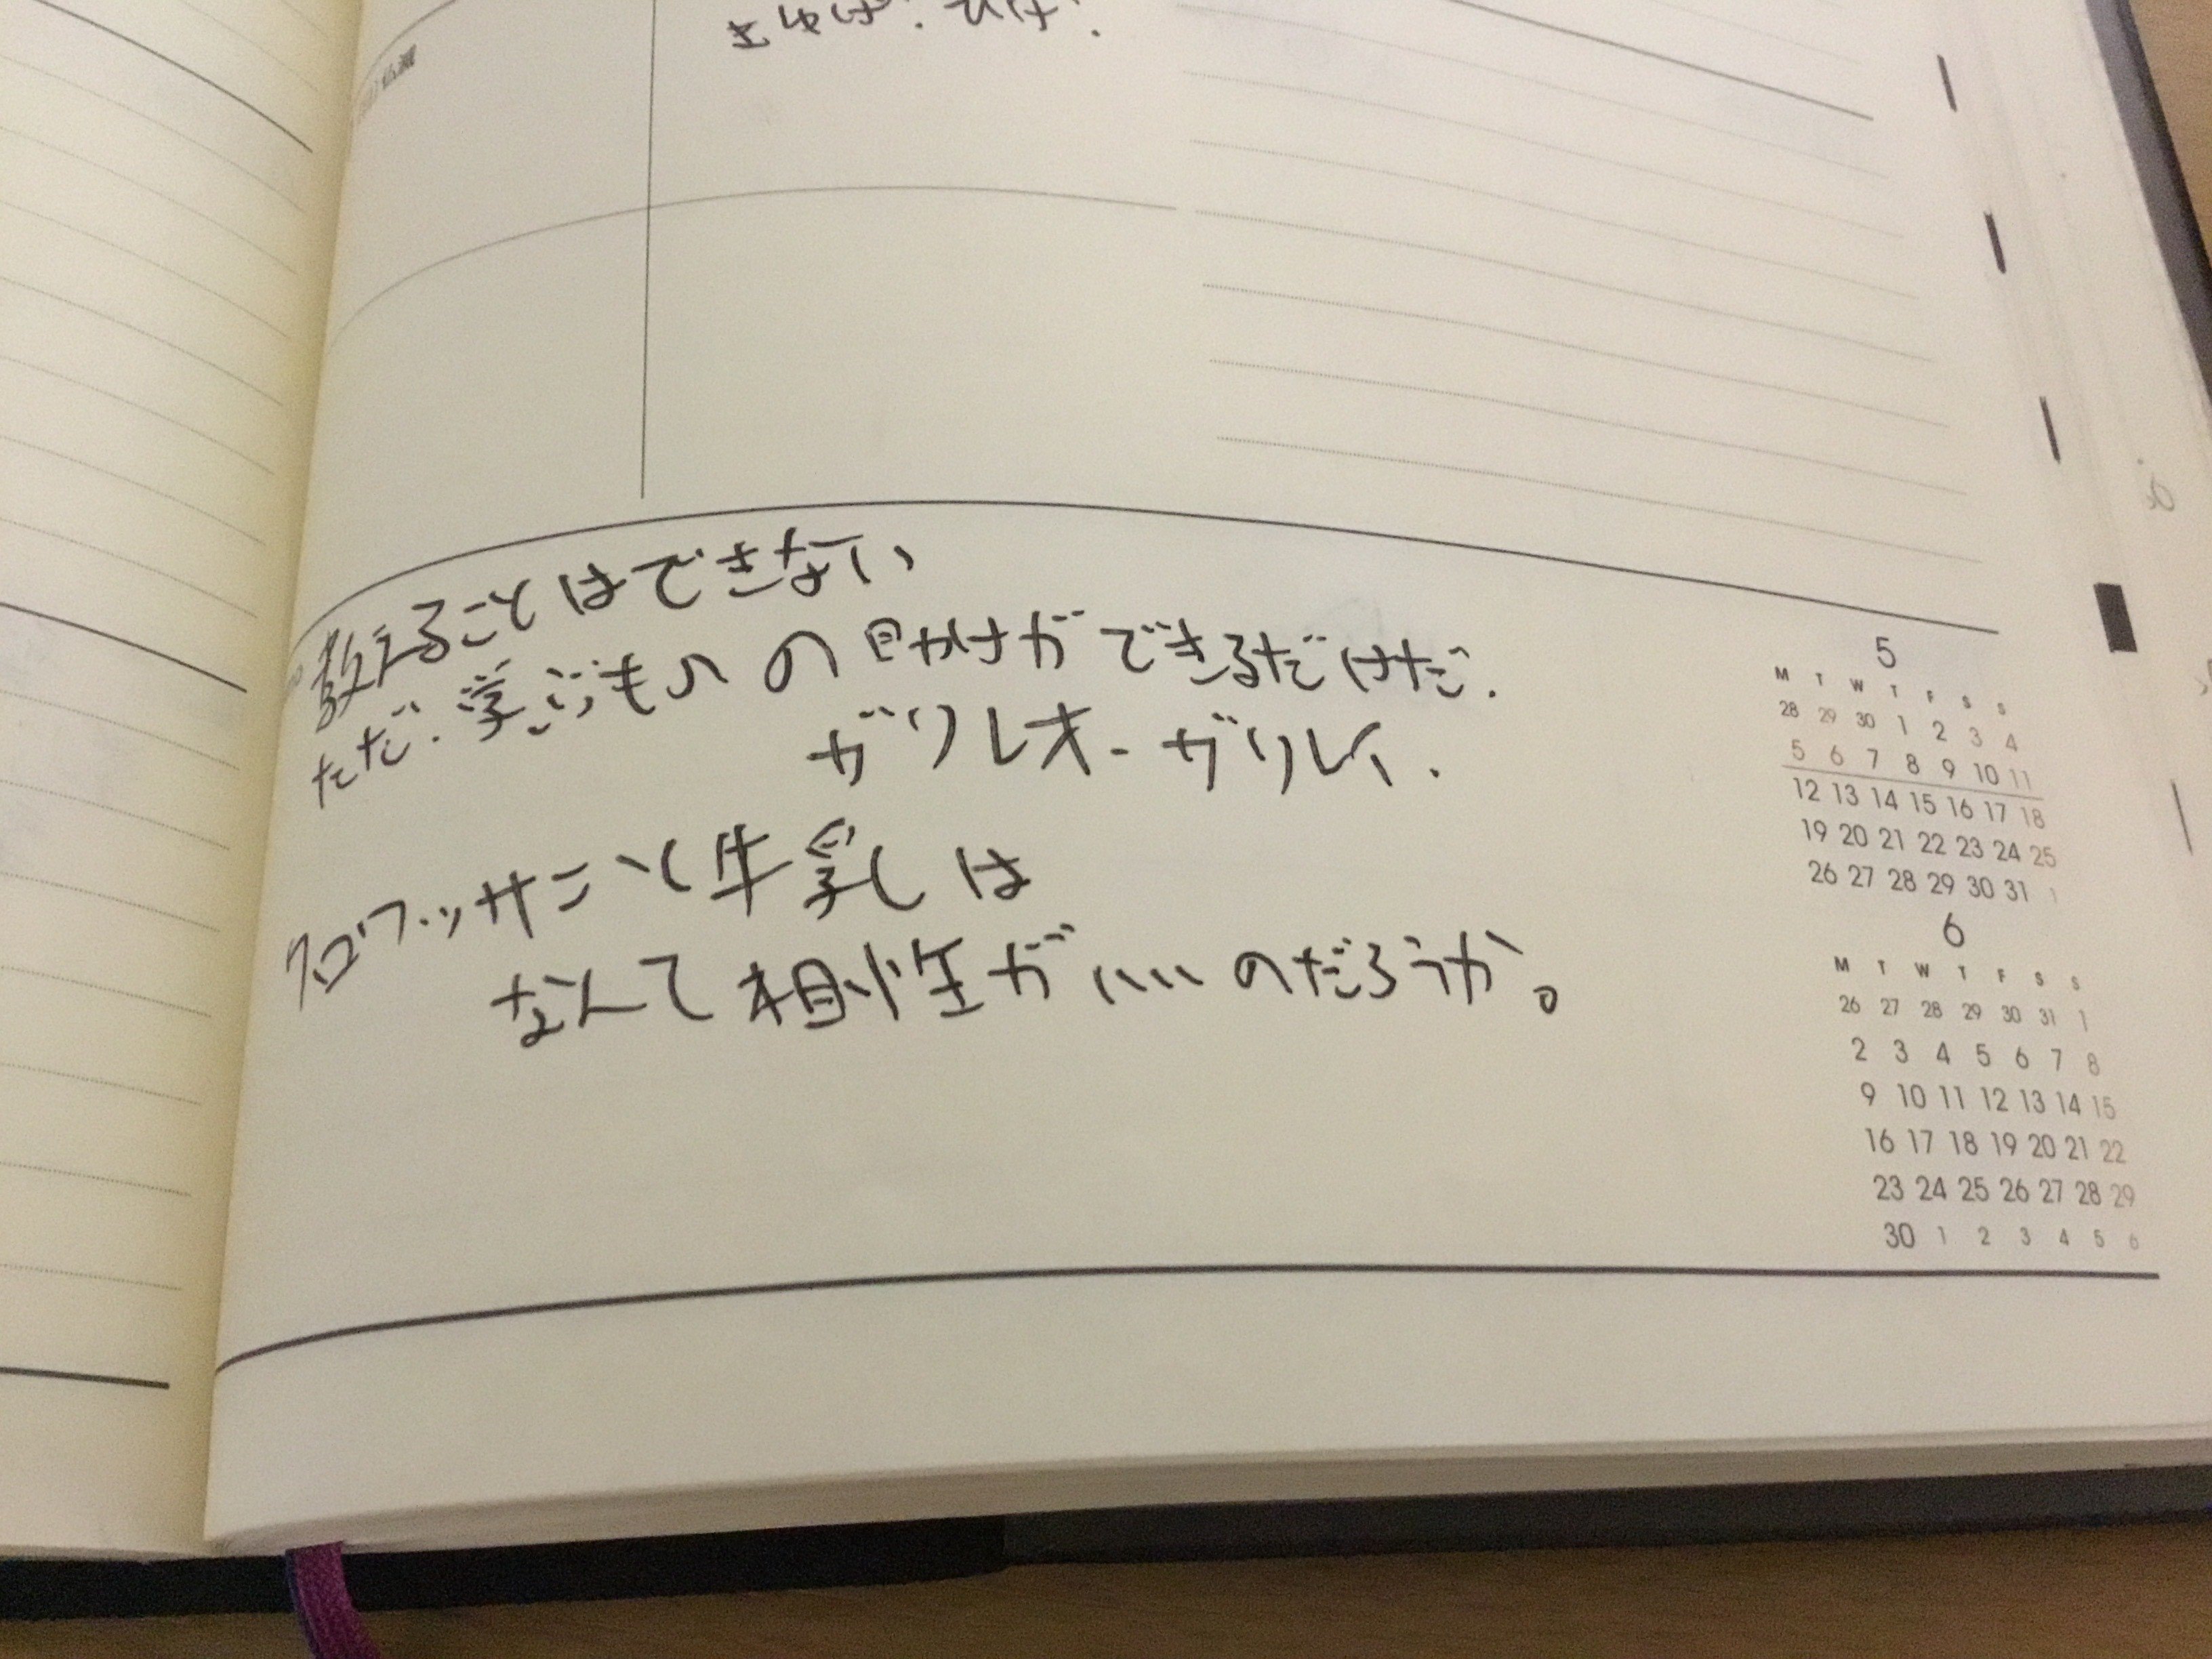 仏滅
教えることはできない
ただ.学ぶもののの目かけができるだけだ.
ガリレオ-ガリレイ.
クロワッサンと牛乳は
なんて相性がいいのだろうか。
5
M T W T F S S
28 29 30 1 2 3 4
5 6 7 8 9 10 11
12 13 14 15 16 17 18
19 20 21 22 23 24 25
26 27 28 29 30 31 1
6
M T W T F S S
26 27 28 29 30 31 1
2 3 4 5 6 7 8
9 10 11 12 13 14 15
16 17 18 19 20 21 22
23 24 25 26 27 28 29
30 1 2 3 4 5 6